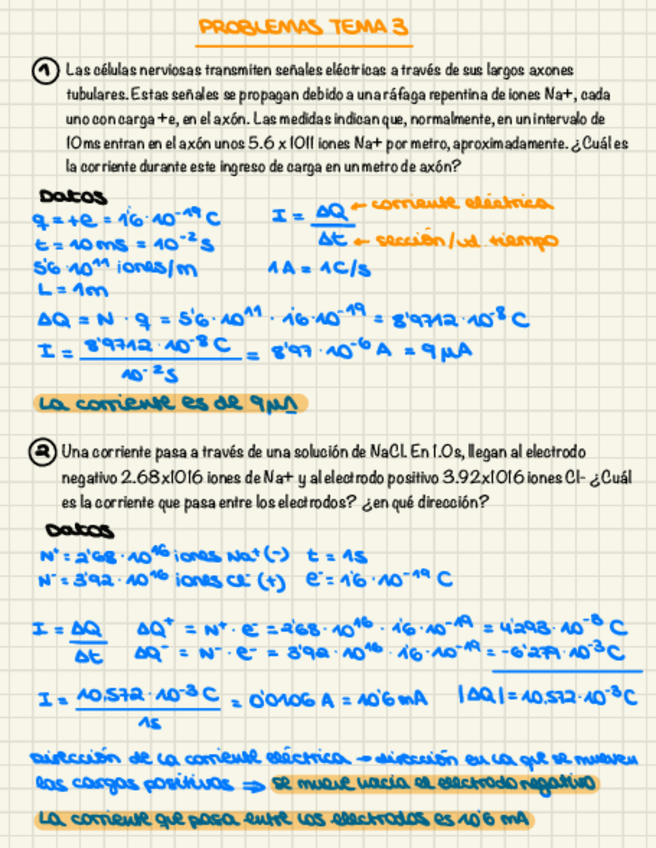 PROBLEMAS TEMA 3
1 Las células nerviosas transmiten señales eléctricas a través de sus largos axones
tubulares. Estas señales se propagan debido a una ráfaga repentina de iones Na+, cada
uno con carga +e, en el axón. Las medidas indican que, normalmente, en un intervalo de
10ms entran en el axón unos 5.6 x 1011 iones Na+ por metro, aproximadamente. ¿Cuál es
la corriente durante este ingreso de carga en un metro de axón?
Datos
q = +e = 1'6·10⁻¹⁹ C I = ΔQ/Δt ← corriente eléctrica
t = 10 ms = 10⁻² s ← sección/ud tiempo
5'6·10¹¹ iones/m 1A = 1C/s
L = 1m
ΔQ = N · q = 5'6·10¹¹ · 1'6·10⁻¹⁹ = 8'9712·10⁻⁸ C
I = 8'9712·10⁻⁸ C / 10⁻² s = 8'97·10⁻⁶ A = 9 μA
La corriente es de 9μA
2 Una corriente pasa a través de una solución de NaCl. En 1.0s, llegan al electrodo
negativo 2.68x1016 iones de Na+ y al electrodo positivo 3.92x1016 iones Cl- ¿Cuál
es la corriente que pasa entre los electrodos? ¿en qué dirección?
Datos
N⁺ = 2'68·10¹⁶ iones Na⁺ (-) t = 1s
N⁻ = 3'92·10¹⁶ iones Cl⁻ (+) e⁻ = 1'6·10⁻¹⁹ C
I = ΔQ/Δt ΔQ⁺ = N⁺·e⁻ = 2'68·10¹⁶ · 1'6·10⁻¹⁹ = 4'293·10⁻³ C
ΔQ⁻ = N⁻·e⁻ = 3'92·10¹⁶ · 1'6·10⁻¹⁹ = -6'279·10⁻³ C
I = 10,572·10⁻³ C / 1s = 0'0106 A = 10'6 mA |ΔQ| = 10,572·10⁻³ C
Dirección de la corriente eléctrica → dirección en la que se mueven
las cargas positivas ⇒ se mueve hacia el electrodo negativo
La corriente que pasa entre los electrodos es 10'6 mA